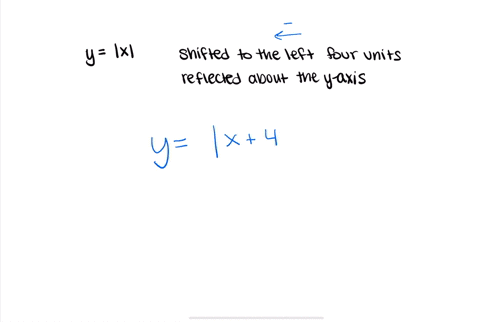 –
y = |x| shifted to the left four units
reflected about the y-axis
y = |x + 4